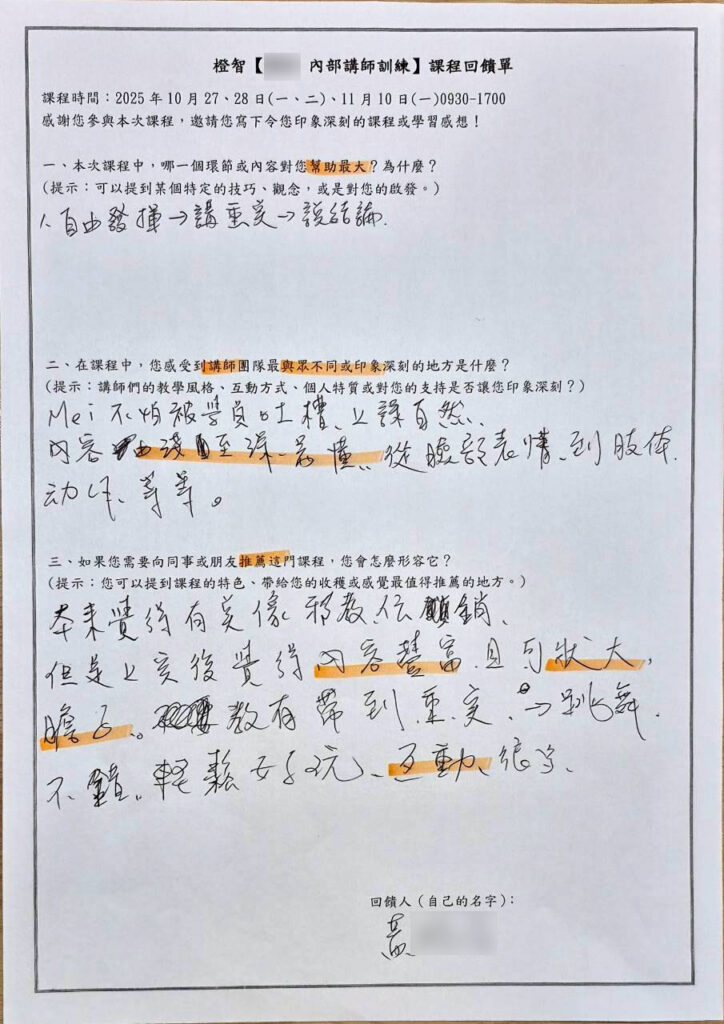 橙智【 內部講師訓練】課程回饋單
課程時間：2025 年 10 月 27、28 日(一、二)、11 月 10 日(一)0930-1700
感謝您參與本次課程，邀請您寫下令您印象深刻的課程或學習感想！
一、本次課程中，哪一個環節或內容對您幫助最大？為什麼？
(提示：可以提到某個特定的技巧、觀念，或是對您的啟發。)
1、自由發揮→講重突→說結論.
二、在課程中，您感受到講師團隊最與眾不同或印象深刻的地方是什麼？
(提示：講師們的教學風格、互動方式、個人特質或對您的支持是否讓您印象深刻？)
Mei 不怕被學員吐槽、上課自然、
內容由淺至深、易懂、從臉部表情、到肢体
动作、等等。
三、如果您需要向同事或朋友推薦這門課程，您會怎麼形容它？
(提示：您可以提到課程的特色、帶給您的收穫或感覺最值得推薦的地方。)
本來覺得有点像邪教、传銷、
但是上完後覺得內容豐富且可狀大
膽子。教有帶到重点、→跳舞
不錯、輕鬆好玩、互動、很多、
回饋人（自己的名字）：
黃